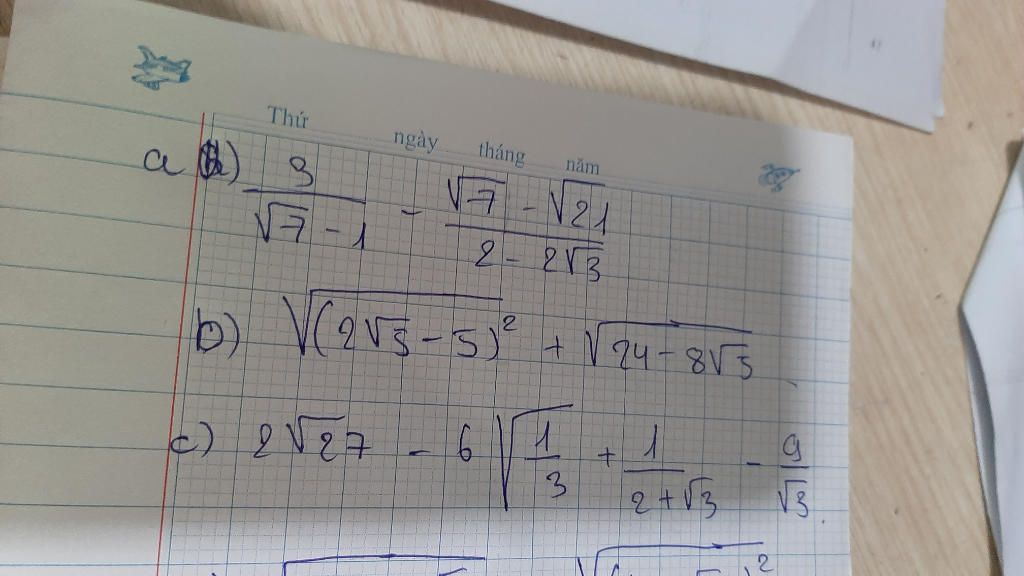 Thứ ngày tháng năm
a) 3/(√7 - 1) - (√7 - √21)/(2 - 2√3)
b) √(2√5 - 5)² + √24 - 8√5
c) 2√27 - 6√(1/3) + 1/(2 + √3) - 9/√3